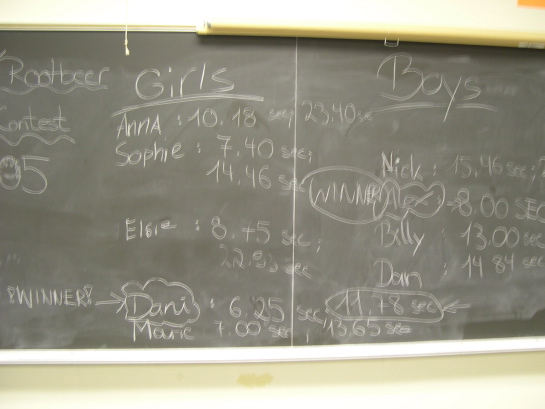 Rootbeer
Contest
05
Girls
Anna : 10.18 sec; 23.40 se
Sophie : 7.40 sec;
14.46 sec
Elsie : 8.75 sec;
22.93 sec
!WINNER! → Dani : 6.25 sec, 11.78 sec
Marie 7.00 sec, 13.65 sec
Boys
Nick : 15.46 sec;
WINNER Alex : 8.00 SEC
Billy : 13.00 sec
Dan : 14.84 sec